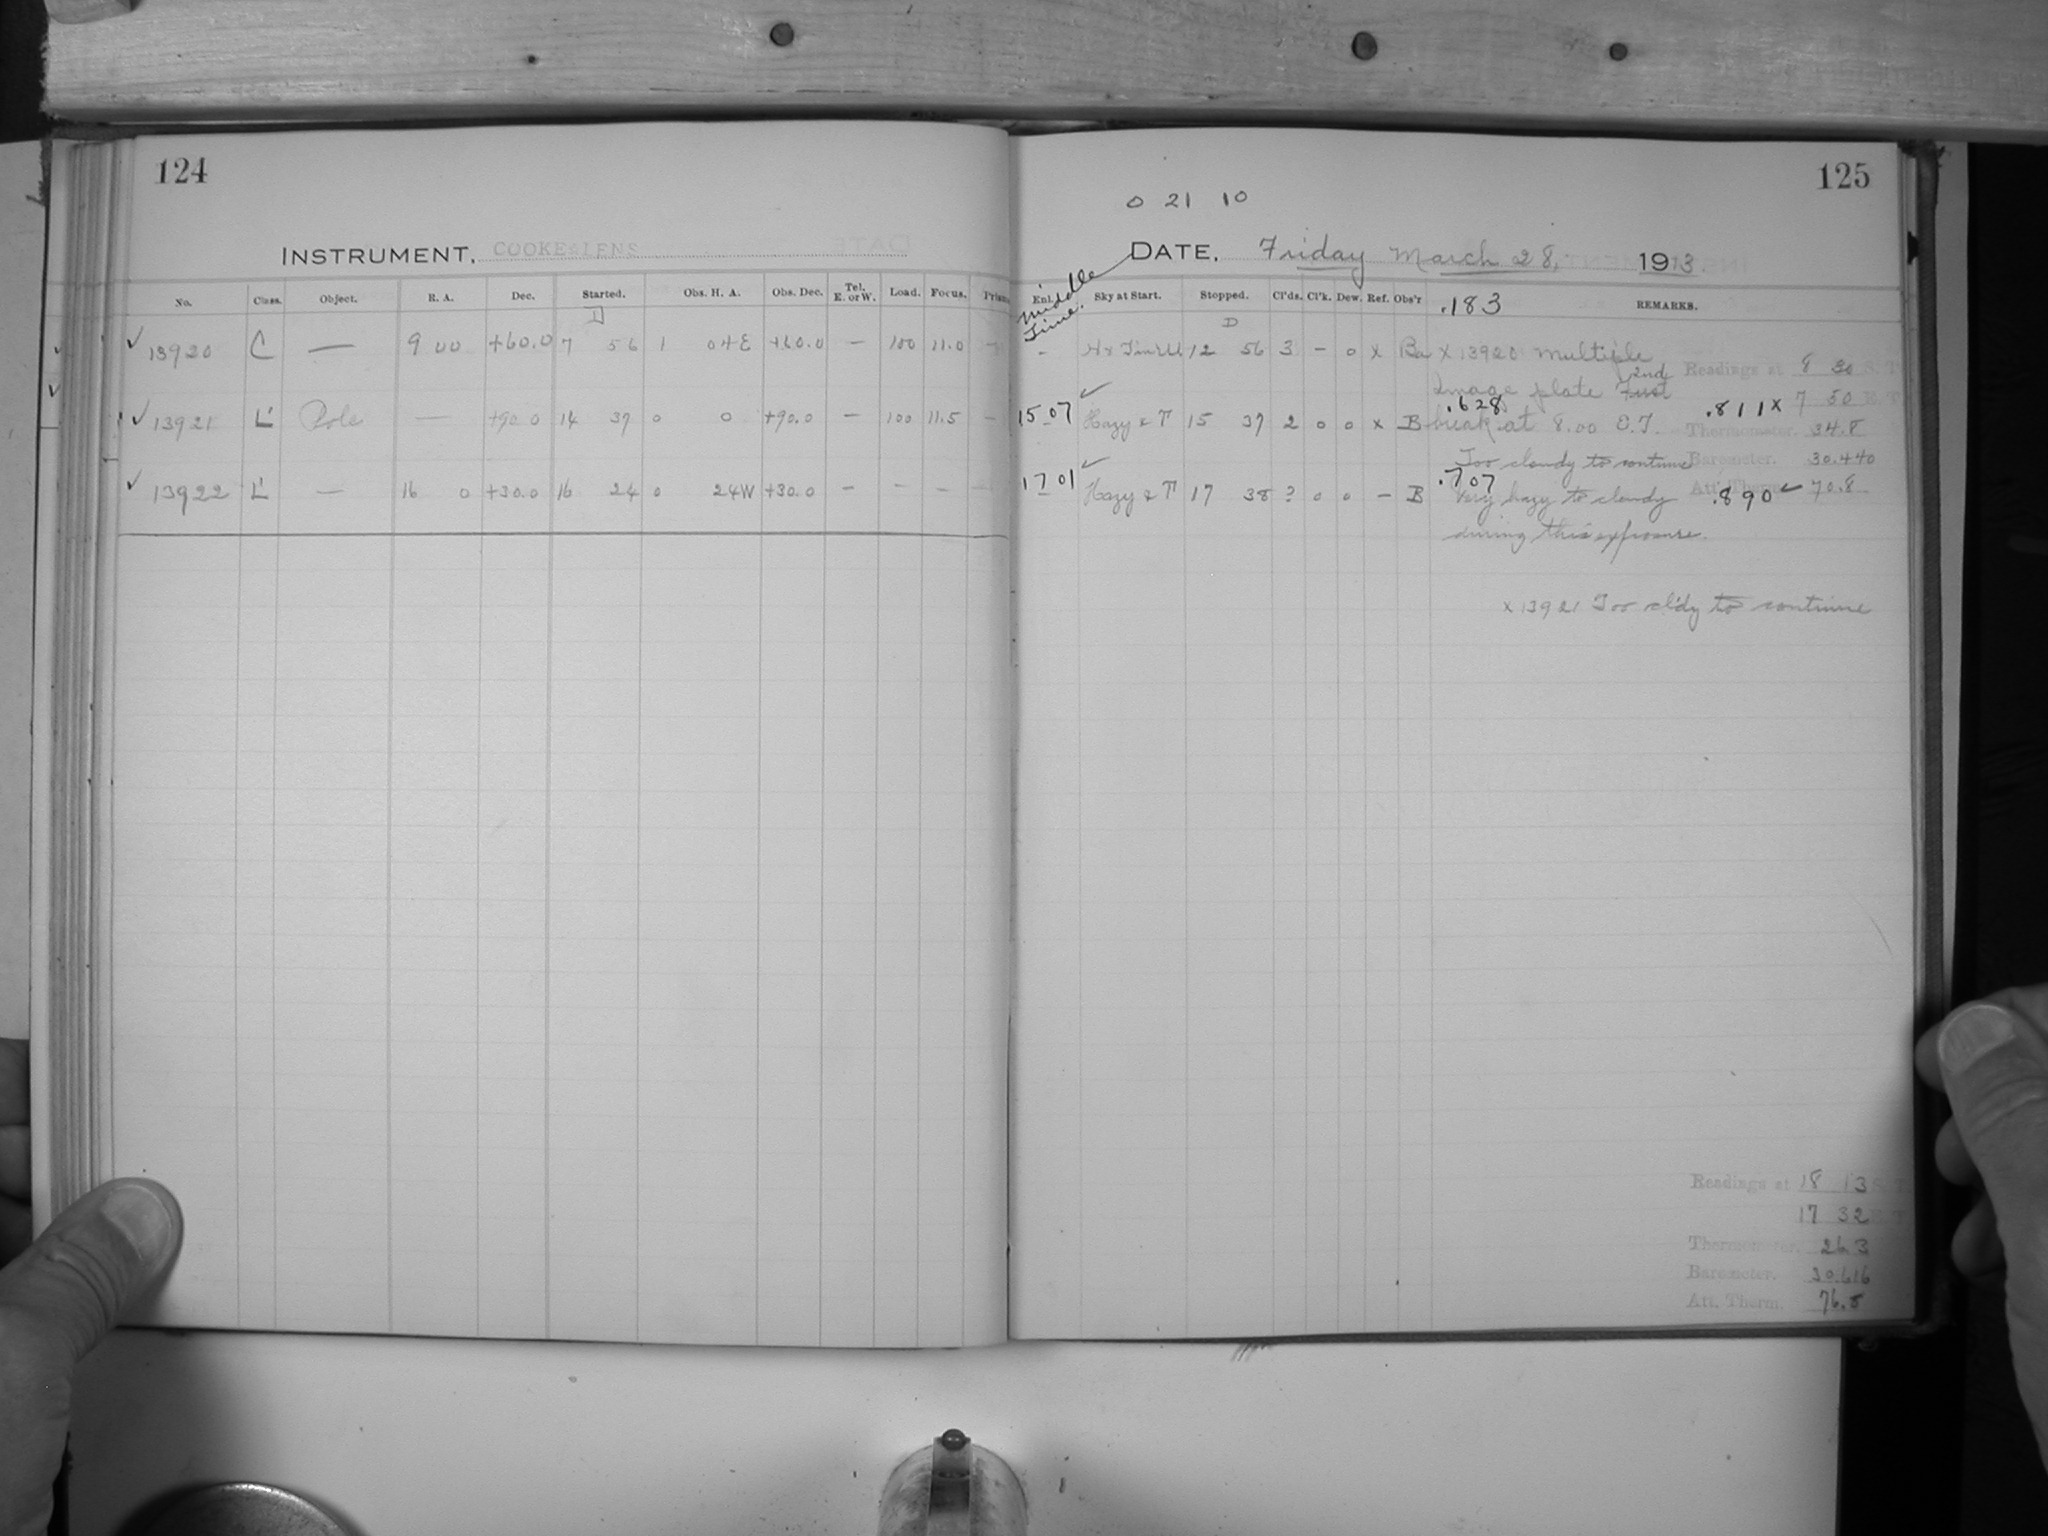 124
INSTRUMENT. COOKE LENS
No. Class. Object. R. A. Dec. Started. Obs. H. A. Obs. Dec. Tel. E. or W. Load. Focus. Prism
D
✓ 13920 C — 9 00 +60.0 7 56 1 04E +60.0 — 100 11.0 —
✓ 13921 L' Pole — +90.0 14 37 0 0 +90.0 — 100 11.5 —
✓ 13922 L' — 16 0 +30.0 16 24 0 24W +30.0 — — — —
125
0 21 10
DATE. Friday March 28, 1913.
Middle Time.
Enl. Sky at Start. Stopped. Cl'ds. Cl'k. Dew. Ref. Obs'r .183 REMARKS.
D
- 12 56 3 — 0 x Ba x 13920 multiple
Readings at 8 30 S. T.
2nd
Image plate First
.628 .811 x 7 50 E. T.
15 07 ✓ Hazy & T 15 37 2 0 0 x B break at 8.00 E.T.
Thermometer. 34.8
Too cloudy to continue
Barometer. 30.440
17 01 ✓ Hazy & T 17 38 ? 0 0 — B .707
Very hazy to cloudy .890 ✓
Att. Therm. 70.8
during this exposure.
x 13921 Too cl'dy to continue
Readings at 18 13 S. T.
17 32 E. T.
Thermometer. 26.3
Barometer. 30.616
Att. Therm. 76.5